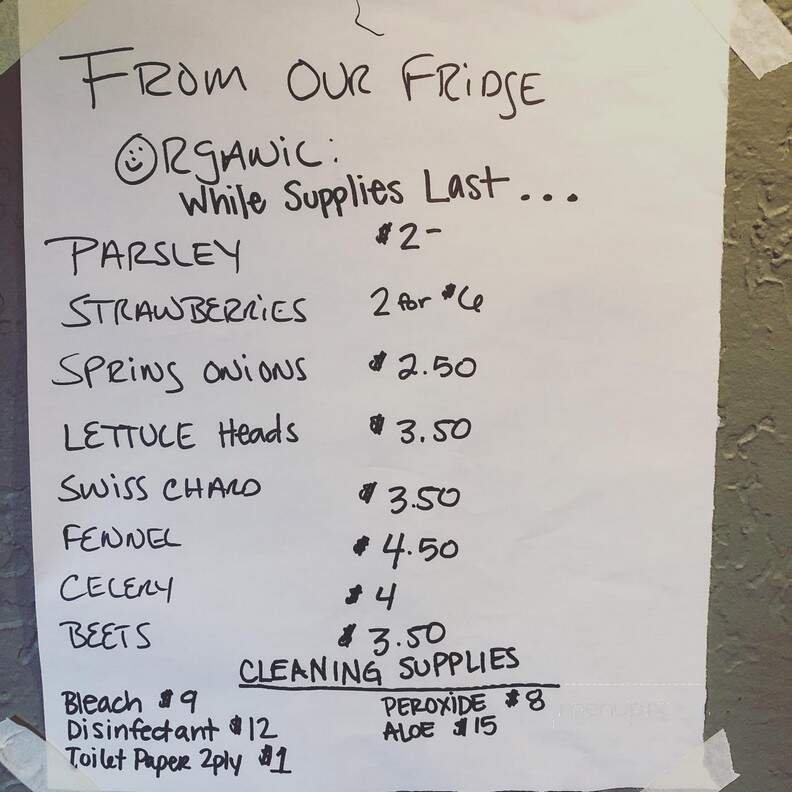 FROM OUR FRIDGE
ORGANIC:
While Supplies Last...
PARSLEY $2-
STRAWBERRIES 2 for $6
SPRING ONIONS $2.50
LETTUCE Heads $3.50
SWISS CHARD $3.50
FENNEL $4.50
CELERY $4
BEETS $3.50
CLEANING SUPPLIES
Bleach $9 PEROXIDE $8
Disinfectant $12 ALOE $15
Toilet Paper 2ply $1